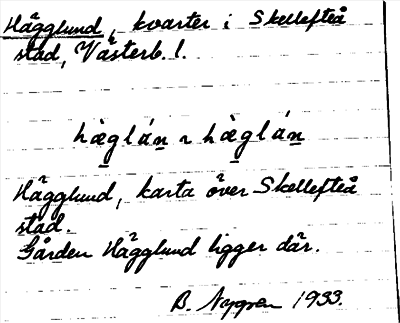 Hägglund, kvarter i Skellefteå
stad, Västerb. l.
hæglán ~ hæglán
Hägglund, karta över Skellefteå
stad.
Gården Hägglund ligger där.
B. Nygren 1933.